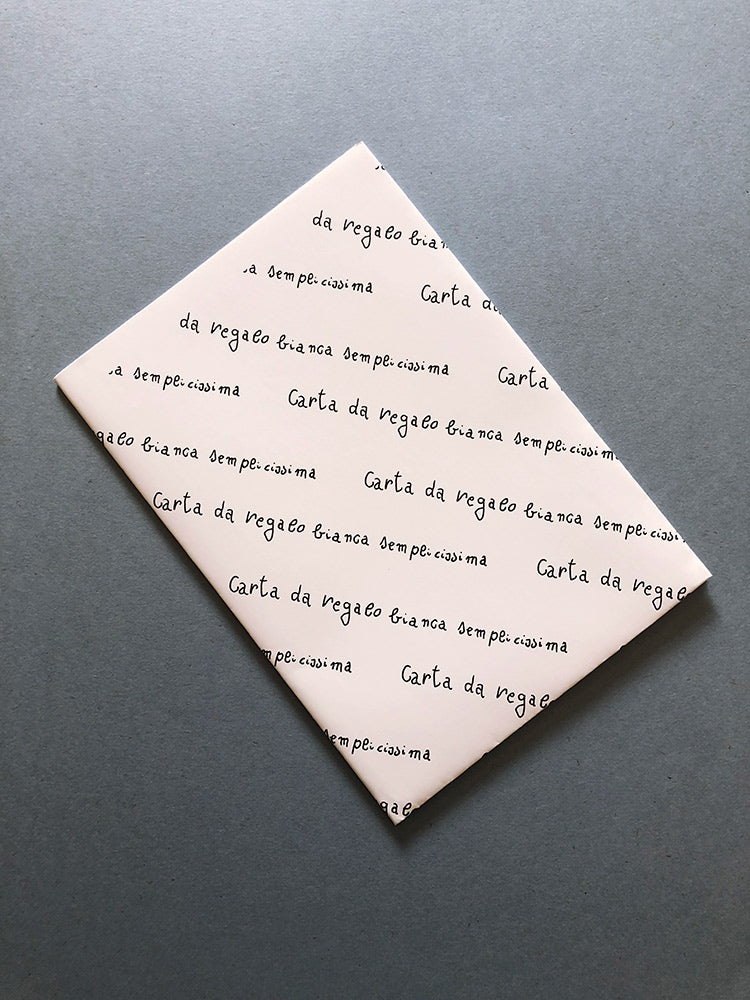 da regalo bian
a semplicissima Carta d
da regalo bianca semplicissima Carta
a semplicissima Carta da regalo bianca semplicissim
galo bianca semplicissima Carta da regalo bianca semplicissi
Carta da regalo bianca semplicissima Carta da regal
Carta da regalo bianca semplicissima
mplicissima Carta da regal
semplicissima
gal